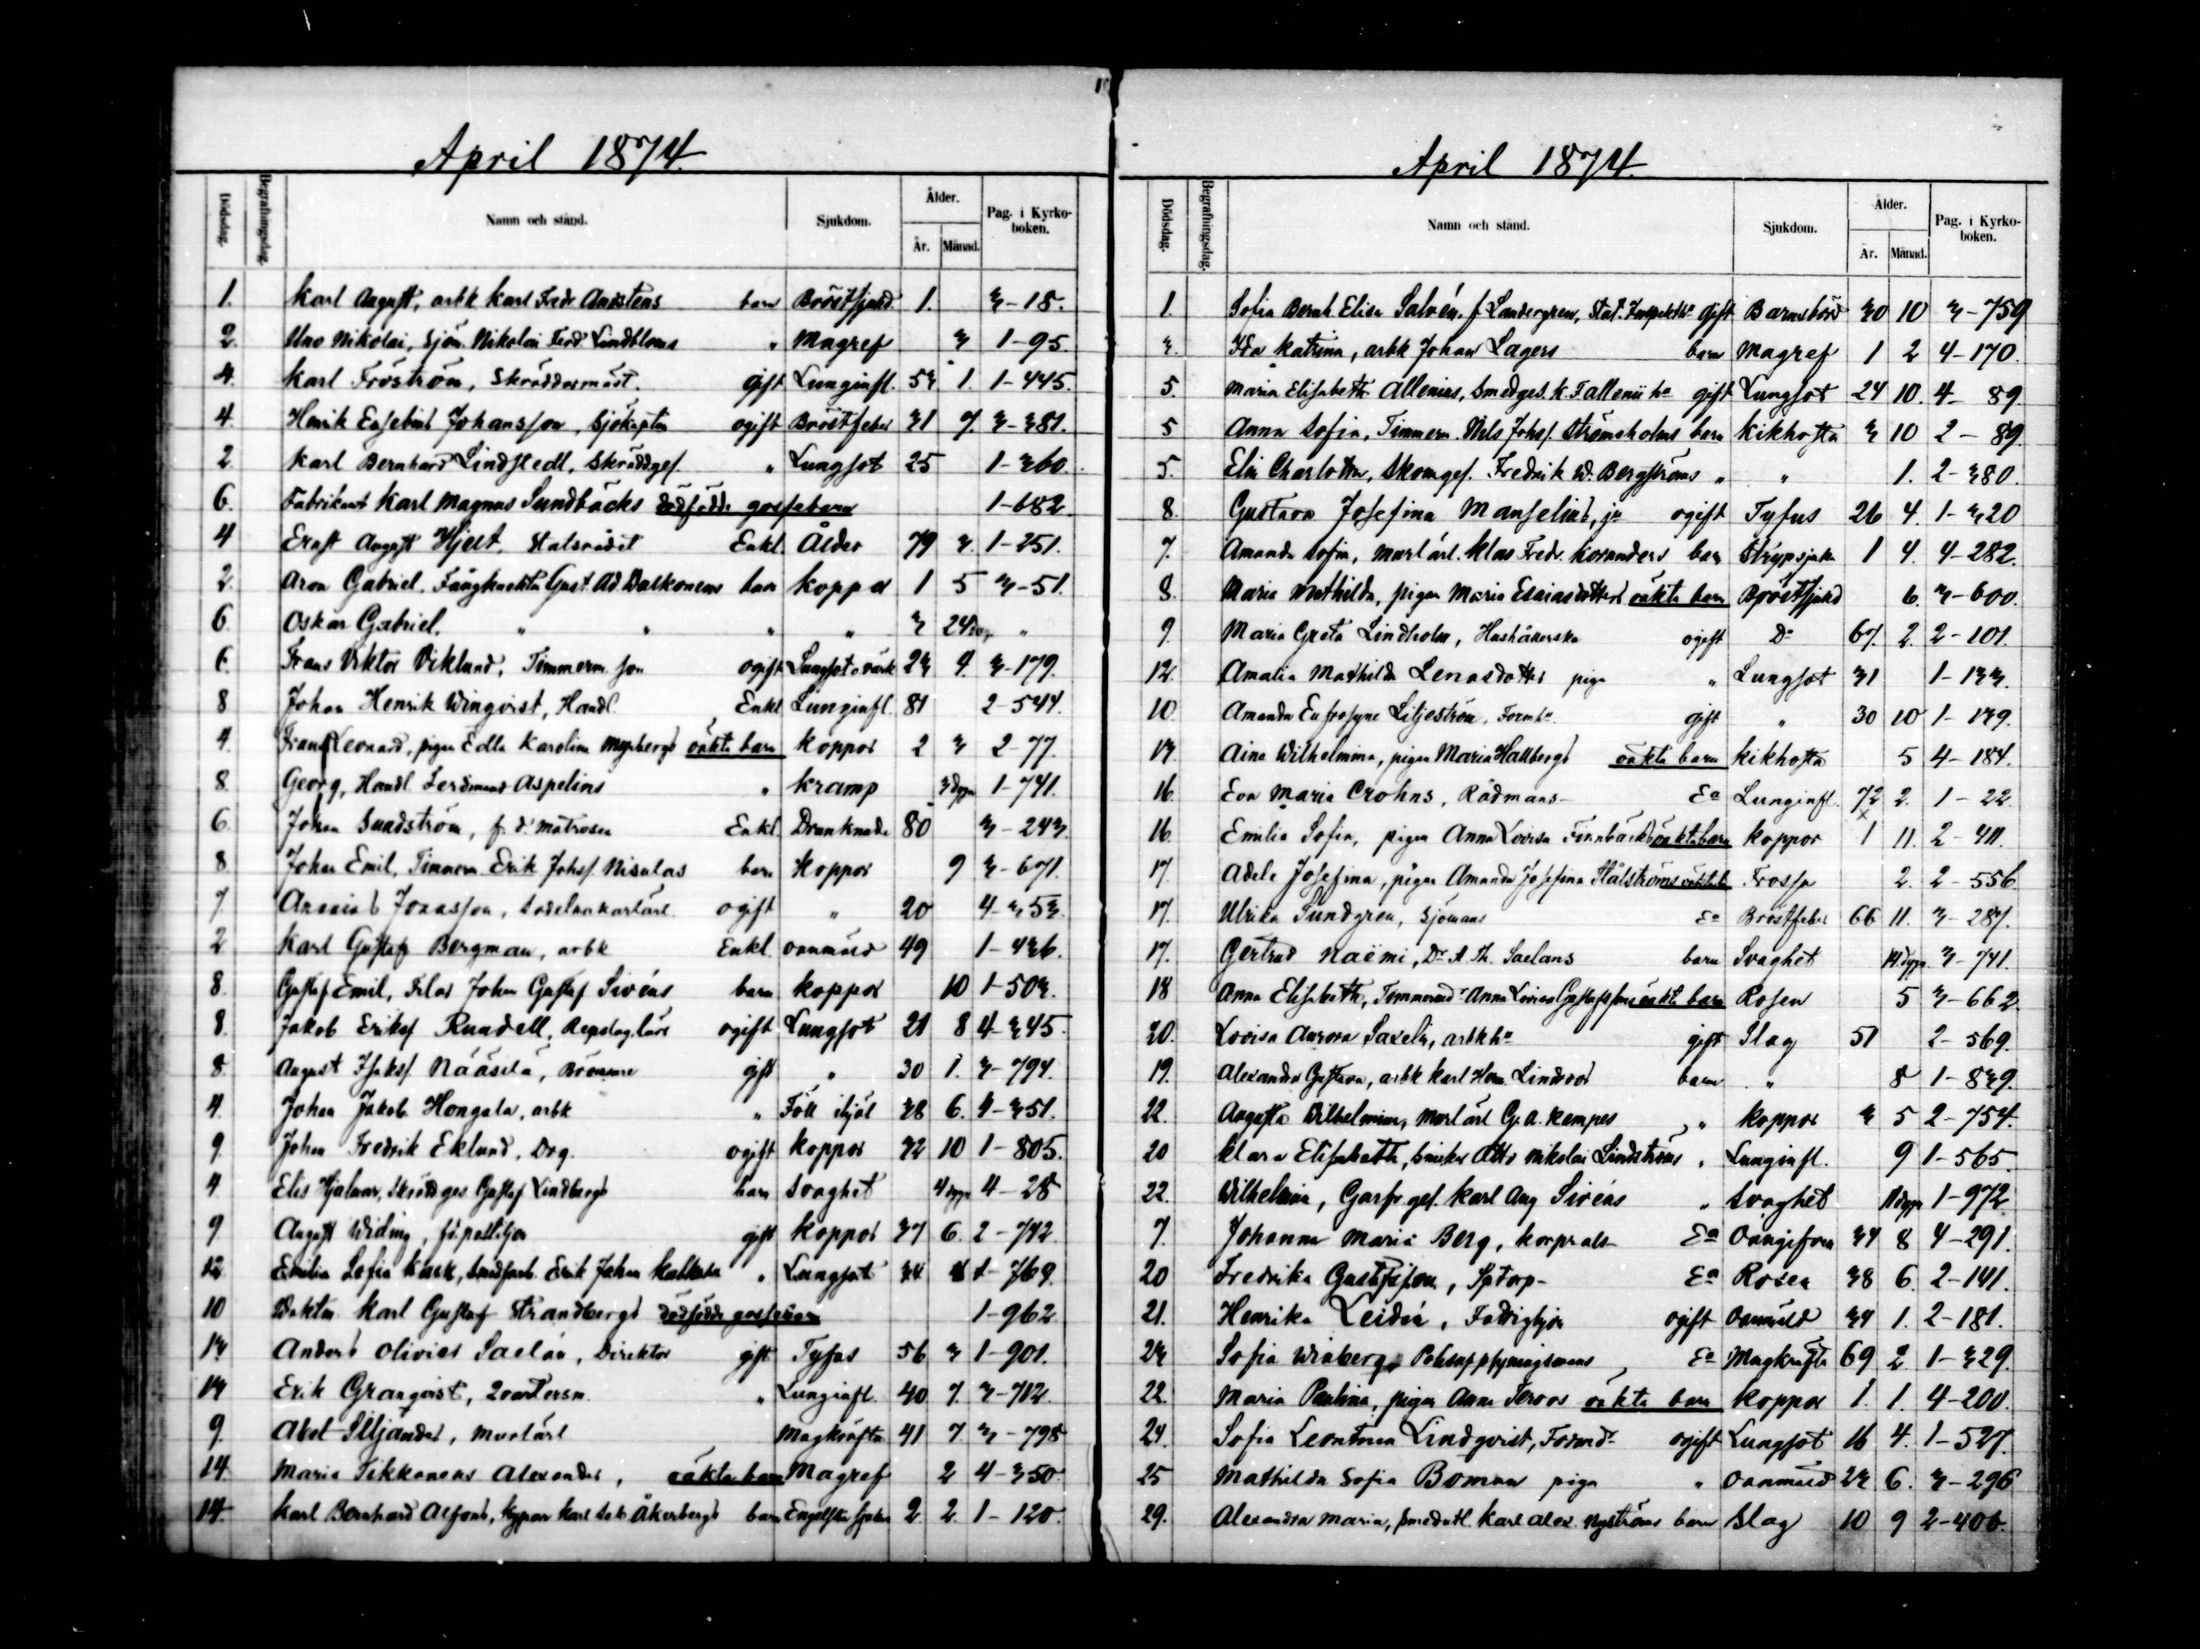 April 1874.
Dödsdag. Begrafningsdag. Namn och stånd. Sjukdom. Ålder. År. Månad. Pag. i Kyrkoboken.
1. Karl August, arbk Karl Fredr. barn Bröstsjukd 1. 3-18.
2. Uno Nikolai, Sjöm. Nikolai Ferd Lindbloms " Magref 3 1-95.
4. Karl Fröström, Skräddarmäst. gift Lunginfl. 53 1. 1-445.
4. Henrik Johansson, Sjökapten ogift Bröstfeber 31 7. 3-381.
2. Karl Bernhard Lindstedt, Skräddgef. " Lungsot 25 1-360
6. Fabrikant Karl Magnus Sundbäcks dödfödde gossebarn 1-682
4 Ernst August Hjelt, Statsrådet Enkl. Ålder 79 3. 1-251.
2. Aron Gabriel, Fångknekten Gust. Ad. barn koppor 1 5 3-51.
6. Oskar Gabriel, " " " " 3 24 dag. "
6. Frans Viktor Viklund, Timmerm. son ogift Lungsot 23 4. 3-179.
8 Johan Henrik Winqvist, Handl. Enkl Lunginfl. 81 2-544.
4. Frans Leonard, pigan Edla Karolina oäkta barn koppor 2 3 2-77.
8. Georg, Handl. Ferdinand Aspelins " kramp 3 dygn 1-741.
6. Johan Sundström, f. d. matrosen Enkl. Drunknade 80 3-243.
8. Johan Emil, Timmerm. Erik Johss. Nisulas barn koppor 9 3-671.
7 Jonasson, ogift " 20 4-353.
2 Karl Gustaf Bergman, arbk Enkl. oanmäld 49 1-436.
8. Gustaf Emil, Filar Johan Gustaf Siréns barn koppor 10 1-503.
8. Jakob Erikss. Rundell, Repslag.lärl ogift Lungsot 21 8 4-345.
8. August Isakss. Nääsilä, gift " 30 1. 3-794.
4. Johan Jakob Hongala, arbk " Föll ihjäl 38 6. 4-351.
9. Johan Fredrik Eklund, Drg. ogift koppor 32 10 1-805.
4. Elis Hjalmar, Skräddges Gustaf Lindbergs barn svaghet 4 dygn 4-28
9 August Widing, gift koppor 37 6. 2-742
12. Emilia Sofia Erik Johan " Lungsot 34 1-769.
10 Karl Gustaf Strandbergs dödfödde gossebarn 1-962
13. Anders Olivier Saelán, Direktor gift Tyfus 56 3 1-901.
13 Erik Granqvist, Qvartersm. " Lunginfl. 40 7. 3-712.
9. Abel Siljander, murlärl Magkräfta 41 7 3-798
14. Maria Tikkanens Alexander, oäkta barn Magref 2 4-350
14. Karl Bernhard Alfons, kypar Karl Åkerbergs barn Engelska sjukan 2 2. 1-120.
April 1874.
Dödsdag. Begrafningsdag. Namn och stånd. Sjukdom. Ålder. År. Månad. Pag. i Kyrkoboken.
1. Sofia Bernh. Elisa Salvén, f. Landergren, Stat. Inspekt hu gift Barnsbörd 30 10 3-759
3. Ida Katrina, arbk Johan Lagers barn Magref 1 2 4-170.
5. Maria Elisabeth Allenius, Smedges. K. F. Allenii hu gift Lungsot 24 10. 4-89.
5 Anna Sofia, Timmerm. Nils Johss. Strömsholms barn kikhosta 3 10 2-89.
5. Elin Charlotta, Skomgef. Fredrik W. Bergströms " " 1. 2-380.
8. Gustava Josefina Manselius, ogift Tyfus 26 4. 1-320
7. Amanda Sofia, murlärl. Klas Fredr. Koranders barn Strypsjuka 1 4. 4-282.
8. Maria Mathilda, pigan Maria Esaiasdotters oäkta barn Bröstsjukd 6. 3-600.
9. Maria Greta Lindholm, Hushållerska ogift Do 67. 2. 2-101.
12. Amalia Mathilda Lenasdotter piga " Lungsot 31 1-133.
10. Amanda Eufrosyne Liljeström, gift " 30 10 1-139.
13. Aina Wilhelmina, pigan Maria Hallbergs oäkta barn kikhosta 5 4-184.
16. Eva Maria Crohns, Rådmans- Ea Lunginfl. 72 2. 1-22.
16. Emilia Sofia, pigan Anna Lovisa Finnbäcks oäkta barn koppor 1 11. 2-411.
17. Adele Josefina, pigan Amanda Josefina Stålströms Trosse 2. 2-556
17. Ulrika Sundgren, Sjömans Ea Bröstfeber 66 11. 3-287.
17. Gertrud Naëmi, Dr A. Th. Saelans barn Svaghet 14 dygn 3-741.
18 Anna Elisabeth, Anna Lovisa oäkta barn Rosen 5 3-662
20. Lovisa Aurora Saxelin, arbk hu gift Slag 51 2-569.
19. Alexandra Gustava, arbk Karl Herm. Lindroos barn " 8 1-839.
22. Augusta Wilhelmina, Murlärl G. A. Kempes " koppor 3 5 2-754.
20 Klara Elisabeth, Otto Nikolai Lindströms " Lunginfl. 9 1-565.
22. Wilhelmina, Garfv.gef. Karl Aug Siréns " Svaghet 11 dygn 1-972
7. Johanna Maria Berg, korprals- Ea Oangifven 34 8 4-291.
20 Fredrika Gustafsson, Ea Rosen 38 6. 2-141.
21. Henrika Leidén, Fattighjon ogift Oanmäld 34 1. 2-181.
23 Sofia Winberg, Ea Magkräfta 69 2. 1-329.
22. Maria Paulina, pigan Anna oäkta barn koppor 1. 1. 4-200.
24. Sofia Leontina Lindqvist, ogift Lungsot 16 4. 1-527.
25 Mathilda Sofia Boman piga " Oanmäld 23 6. 3-296
29. Alexandra Maria, Karl Alex. Nyströms barn Slag 10 9 2-406.